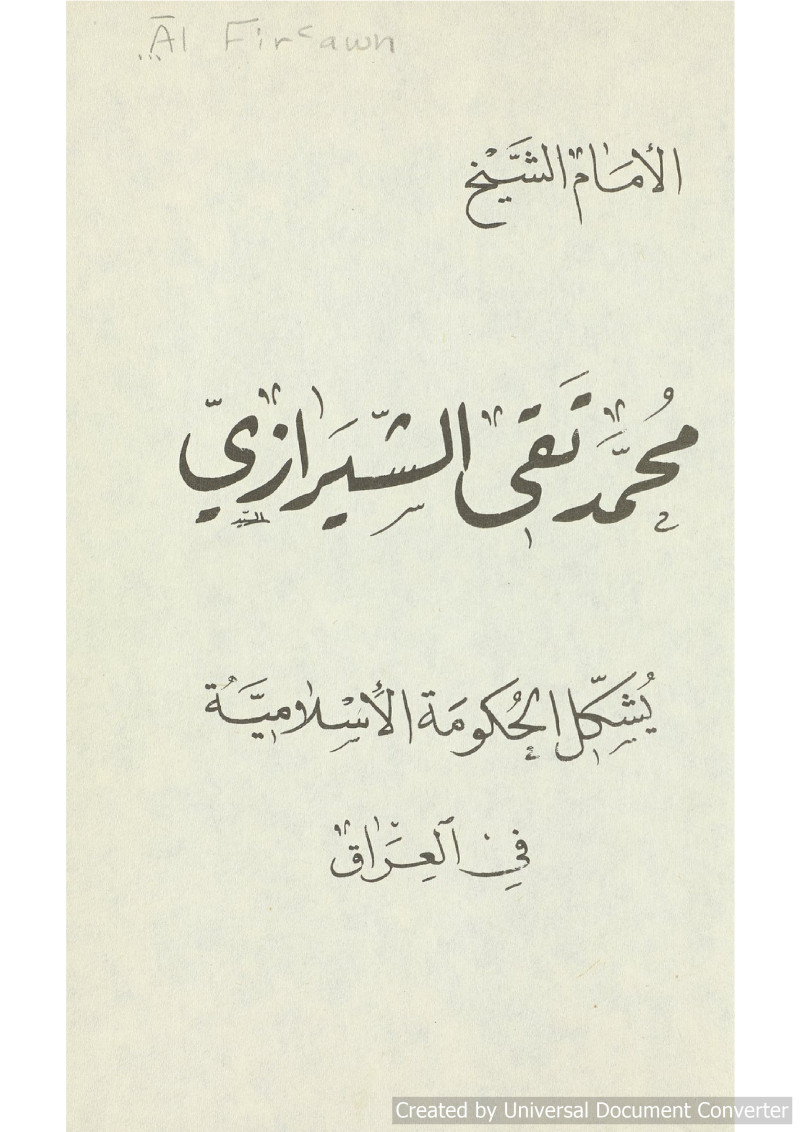 Āl Firʿawn ...
الأمام الشَّيْخ
مُحَمَّد تَقي الشِّيرَازيّ
يُشَكِّل الحُكومَة الأسْلاميَّة
في العِرَاق
Created by Universal Document Converter